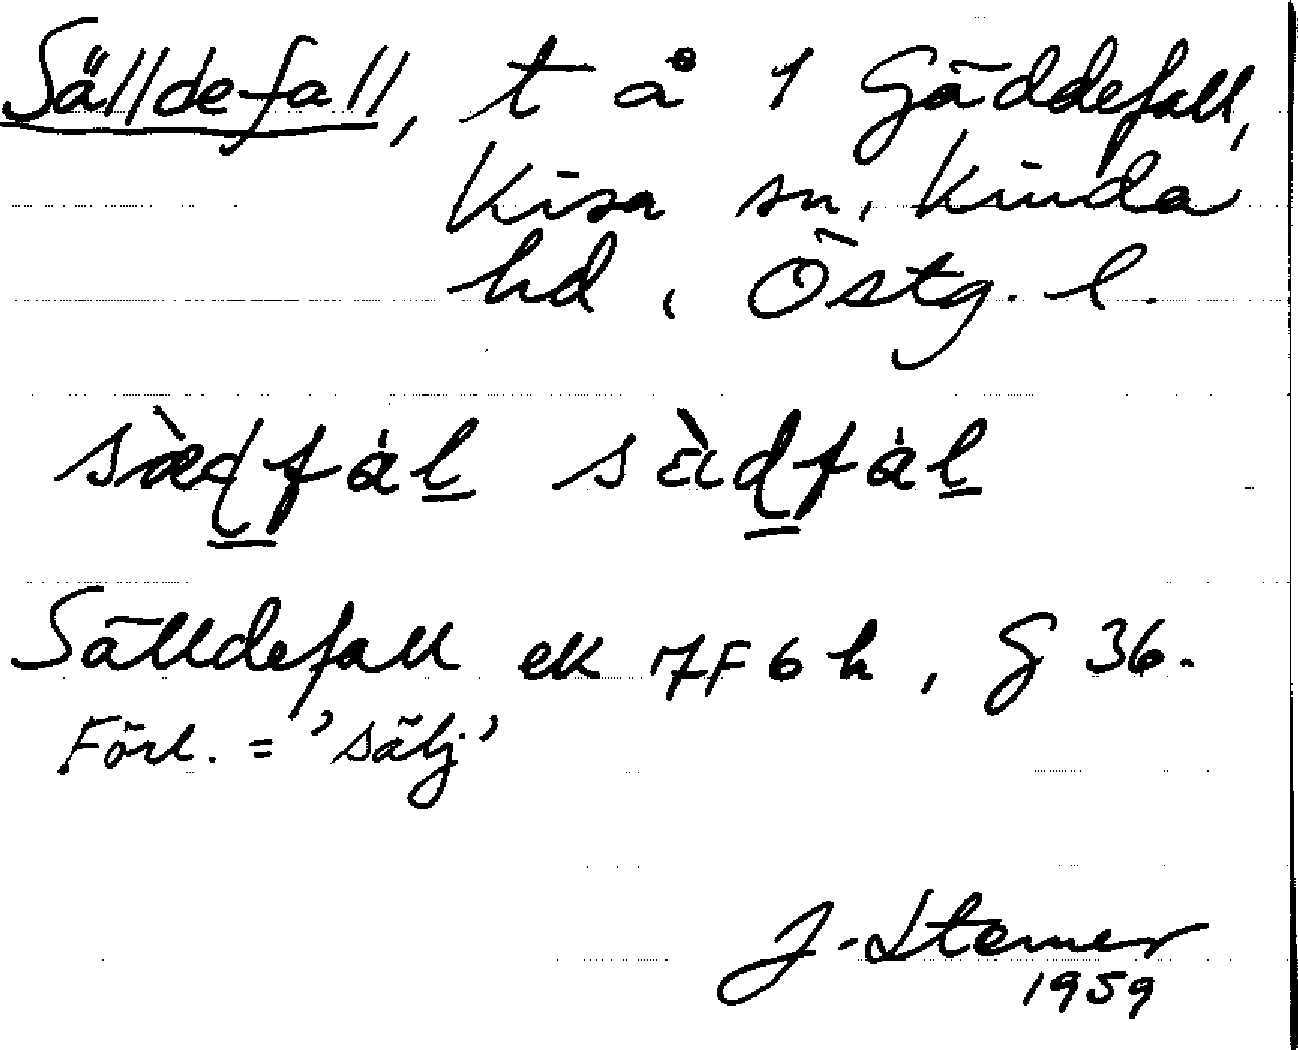 Sälldefall, t å 1 Gäddefall,
Kisa sn, Kinda
hd, Östg. l.
sæ̀d̠fàl̠ sɛ̀d̠fàl̠
Sälldefall ek 7F6h, G 36.
Förl. = 'sälj'
1959